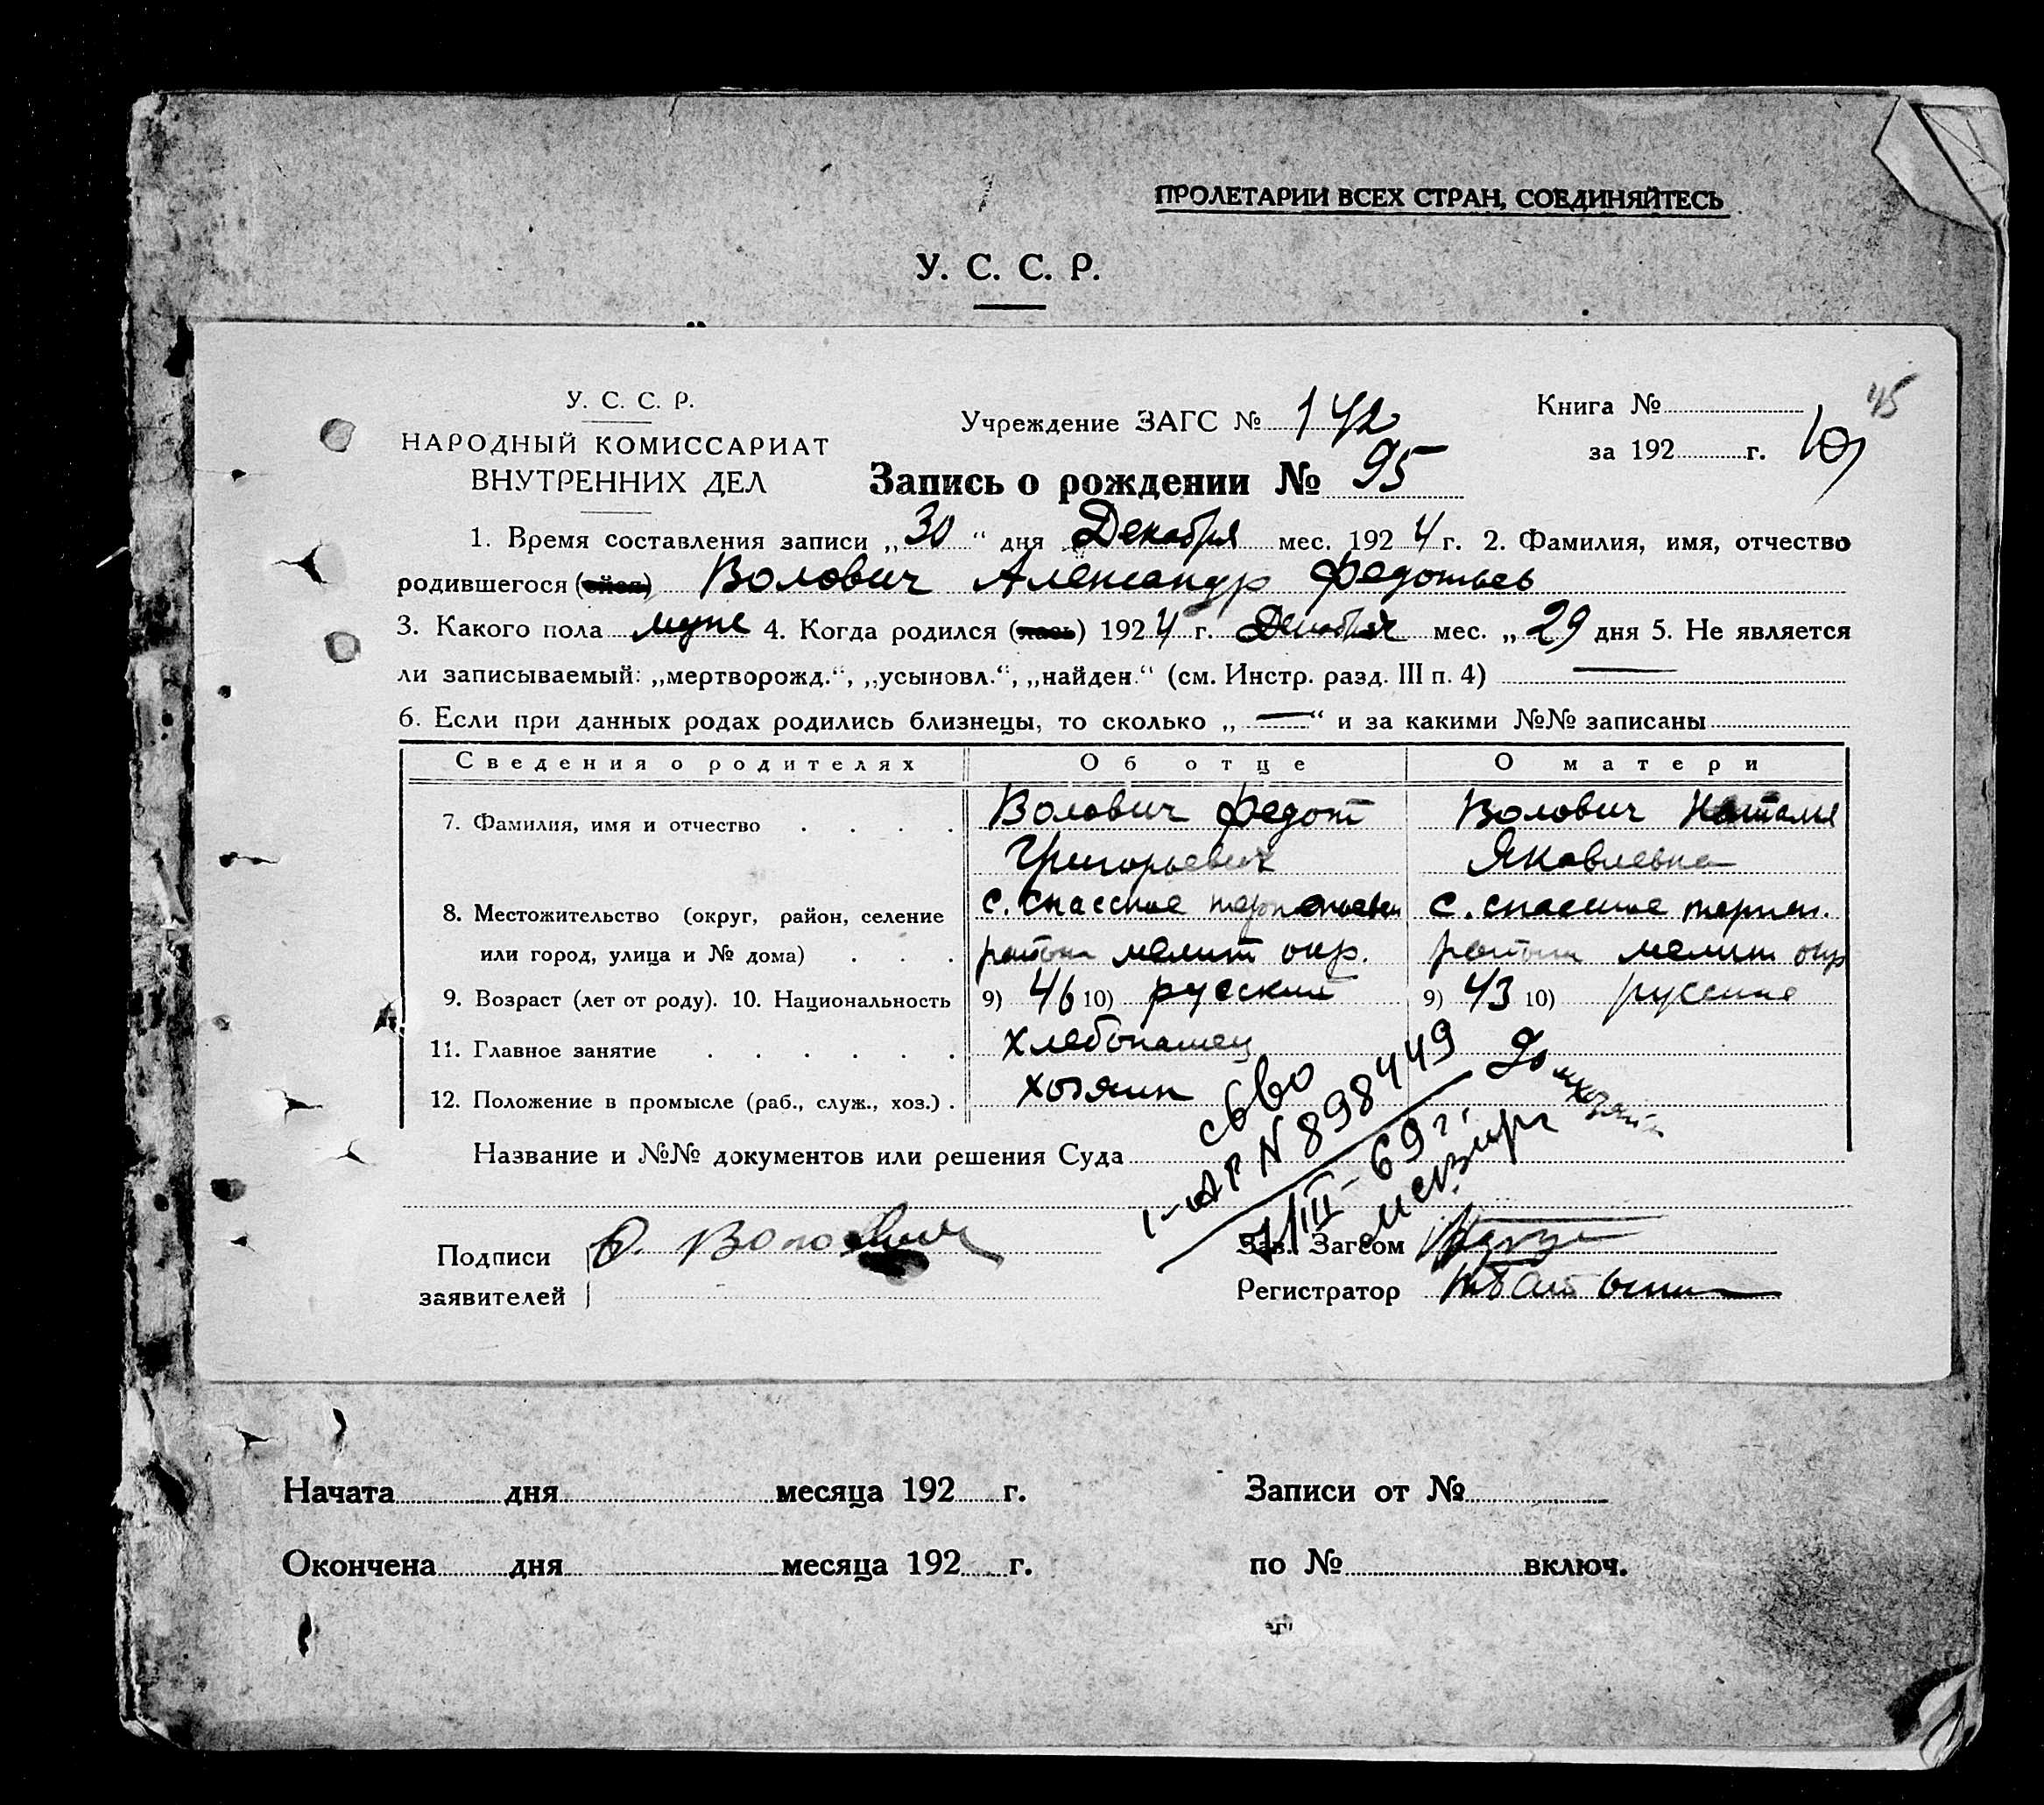 ПРОЛЕТАРИИ ВСЕХ СТРАН, СОЕДИНЯЙТЕСЬ
У. С. С. Р.
У. С. С. Р.
НАРОДНЫЙ КОМИССАРИАТ
ВНУТРЕННИХ ДЕЛ
Учреждение ЗАГС № 142
Книга № 45
за 192 г.
Запись о рождении № 95
1. Время составления записи „30“ дня Декабря мес. 1924 г. 2. Фамилия, имя, отчество
родившегося (ейся) Волович Александр Федотьев
3. Какого пола муж 4. Когда родился (лась) 1924 г. Декабря мес. „29 дня 5. Не является
ли записываемый: „мертворожд.“, „усыновл.“, „найден.“ (см. Инстр. разд. III п. 4) —
6. Если при данных родах родились близнецы, то сколько „—“ и за какими №№ записаны
Сведения о родителях Об отце О матери
7. Фамилия, имя и отчество . . . . Волович Федот Волович Наталия
Григорьевич Яковлевна
8. Местожительство (округ, район, селение с. Спасское с. спасское терпен.
или город, улица и № дома) . . . район мелит окр. район мелит окр
9. Возраст (лет от роду). 10. Национальность 9) 46 10) русский 9) 43 10) русские
11. Главное занятие . . . . . . Хлебопашец Домхозяйк
12. Положение в промысле (раб., служ., хоз.) . хозяин
свво
I-АР N 898449
Название и №№ документов или решения Суда
7/III-69 г.
Подписи Ф. Волович
заявителей
Зав. Загсом
Регистратор
Начата дня месяца 192 г. Записи от №
Окончена дня месяца 192 г. по № включ.